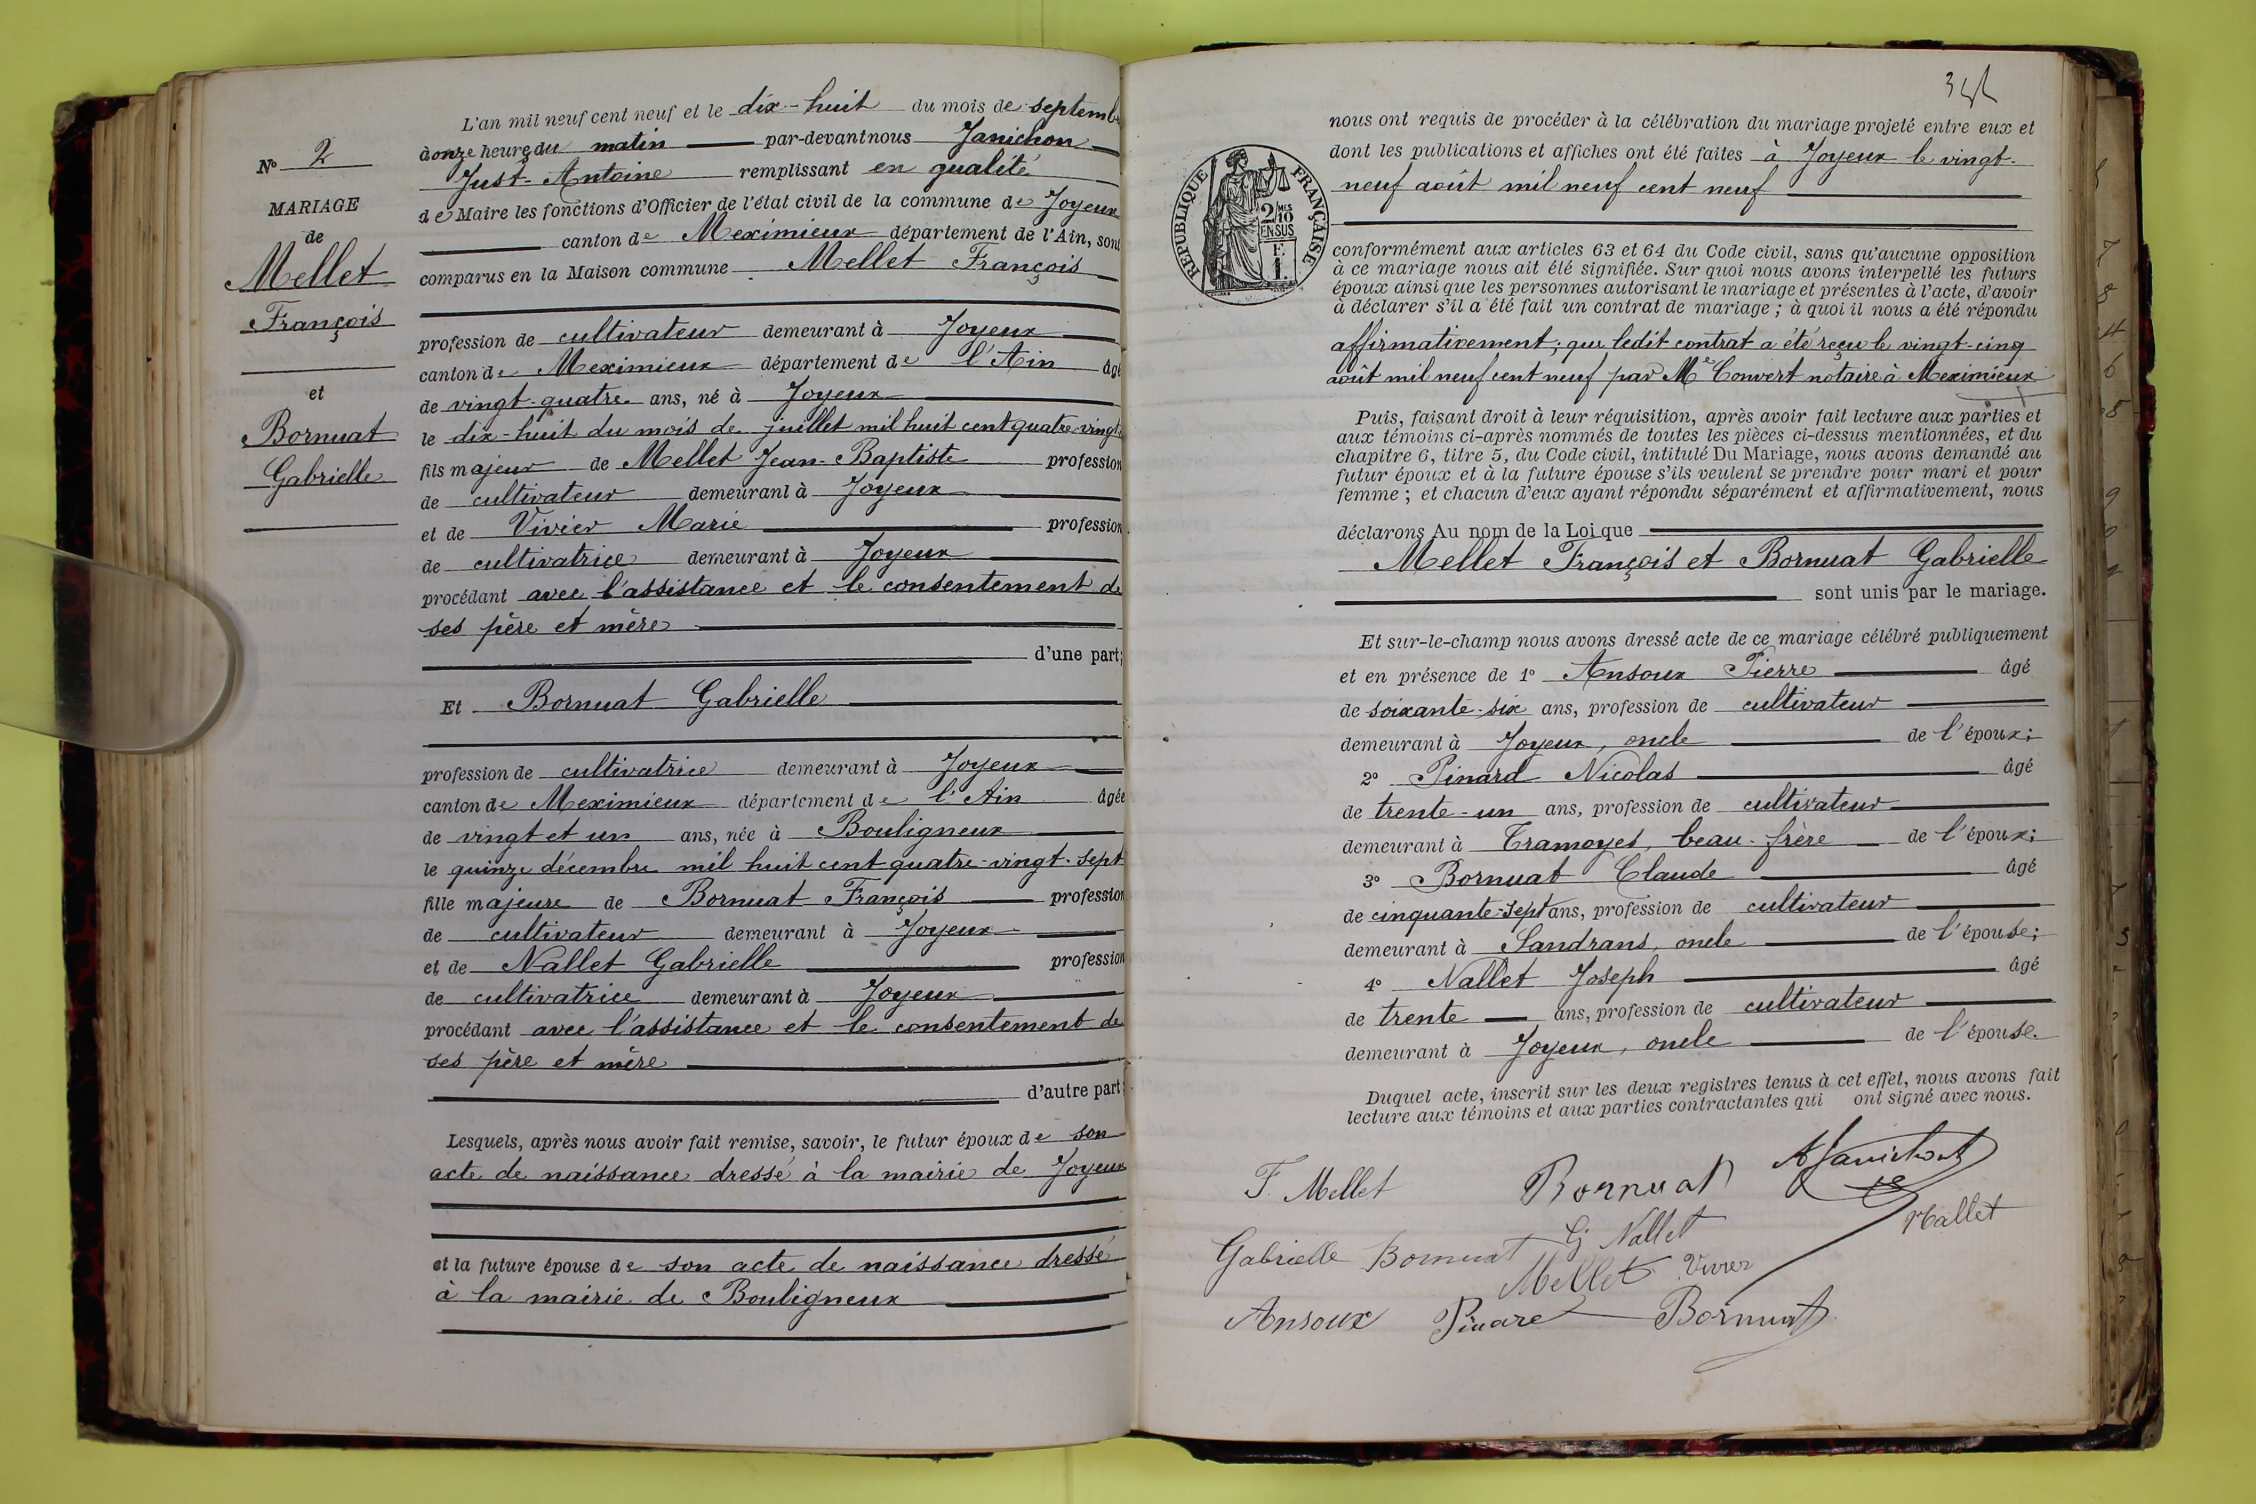 N° 2
MARIAGE
de
Mellet
François
et
Bornuat
Gabrielle
L'an mil neuf cent neuf et le dix-huit du mois de septemb
à onze heures du matin par-devant nous Janichon
Just-Antoine remplissant en qualité
de Maire les fonctions d'Officier de l'état civil de la commune de Joyeux
canton de Meximieux département de l'Ain, sont
comparus en la Maison commune Mellet François
profession de cultivateur demeurant à Joyeux
canton de Meximieux département de l'Ain âgé
de vingt-quatre ans, né à Joyeux
le dix-huit du mois de juillet mil huit cent quatre-vingt
fils majeur de Mellet Jean-Baptiste profession
de cultivateur demeurant à Joyeux
et de Vivier Marie profession
de cultivatrice demeurant à Joyeux
procédant avec l'assistance et le consentement de
ses père et mère
d'une part;
Et Bornuat Gabrielle
profession de cultivatrice demeurant à Joyeux
canton de Meximieux département de l'Ain âgée
de vingt et un ans, née à Bouligneux
le quinze décembre mil huit cent quatre-vingt-sept
fille majeure de Bornuat François profession
de cultivateur demeurant à Joyeux
et de Nallet Gabrielle profession
de cultivatrice demeurant à Joyeux
procédant avec l'assistance et le consentement de
ses père et mère
d'autre part;
Lesquels, après nous avoir fait remise, savoir, le futur époux de son
acte de naissance dressé à la mairie de Joyeux
et la future épouse de son acte de naissance dressé
à la mairie de Bouligneux
RÉPUBLIQUE FRANÇAISE
2/10 MES
EN SUS
F.
1.
nous ont requis de procéder à la célébration du mariage projeté entre eux et
dont les publications et affiches ont été faites à Joyeux le vingt-
neuf août mil neuf cent neuf
conformément aux articles 63 et 64 du Code civil, sans qu'aucune opposition
à ce mariage nous ait été signifiée. Sur quoi nous avons interpellé les futurs
époux ainsi que les personnes autorisant le mariage et présentes à l'acte, d'avoir
à déclarer s'il a été fait un contrat de mariage; à quoi il nous a été répondu
affirmativement; que ledit contrat a été reçu le vingt-cinq
août mil neuf cent neuf par Me Convert notaire à Meximieux
Puis, faisant droit à leur réquisition, après avoir fait lecture aux parties et
aux témoins ci-après nommés de toutes les pièces ci-dessus mentionnées, et du
chapitre 6, titre 5, du Code civil, intitulé Du Mariage, nous avons demandé au
futur époux et à la future épouse s'ils veulent se prendre pour mari et pour
femme; et chacun d'eux ayant répondu séparément et affirmativement, nous
déclarons Au nom de la Loi que
Mellet François et Bornuat Gabrielle
sont unis par le mariage.
Et sur-le-champ nous avons dressé acte de ce mariage célébré publiquement
et en présence de 1° Ansoux Pierre âgé
de soixante-six ans, profession de cultivateur
demeurant à Joyeux, oncle de l'époux;
2° Pinard Nicolas âgé
de trente-un ans, profession de cultivateur
demeurant à Tramoyes, beau-frère de l'époux;
3° Bornuat Claude âgé
de cinquante-sept ans, profession de cultivateur
demeurant à Sandrans, oncle de l'épouse;
4° Nallet Joseph âgé
de trente ans, profession de cultivateur
demeurant à Joyeux, oncle de l'épouse.
Duquel acte, inscrit sur les deux registres tenus à cet effet, nous avons fait
lecture aux témoins et aux parties contractantes qui ont signé avec nous.
F. Mellet Bornuat A Janichon
Gabrielle Bornuat G Nallet Nallet
Mellet Vivier
Ansoux Pinard Bornuat